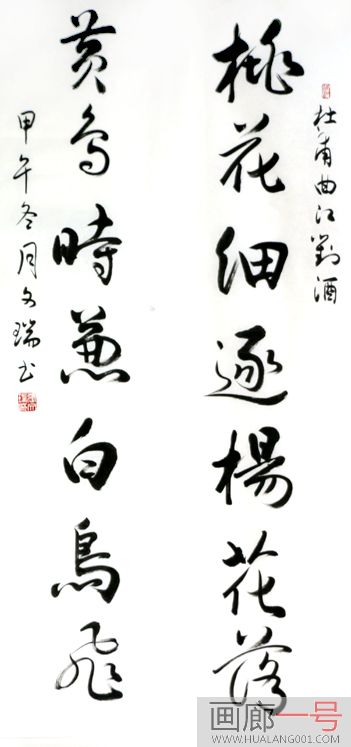 杜甫曲江對酒
桃花細逐楊花落
黄鸟時兼白鳥飛
甲午冬月文瑞书
画廊一号
WWW.HUALANG001.COM